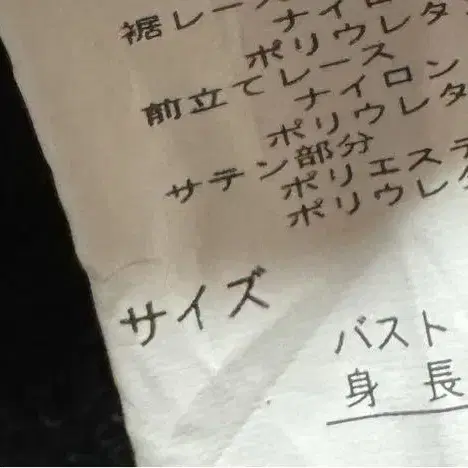 裾レース
ナイロ
ポリウレタ
前立てレース
ナイロン
ポリウレタ
サテン部分
ポリエステ
ポリウレタ
サイズ
バスト
身 長